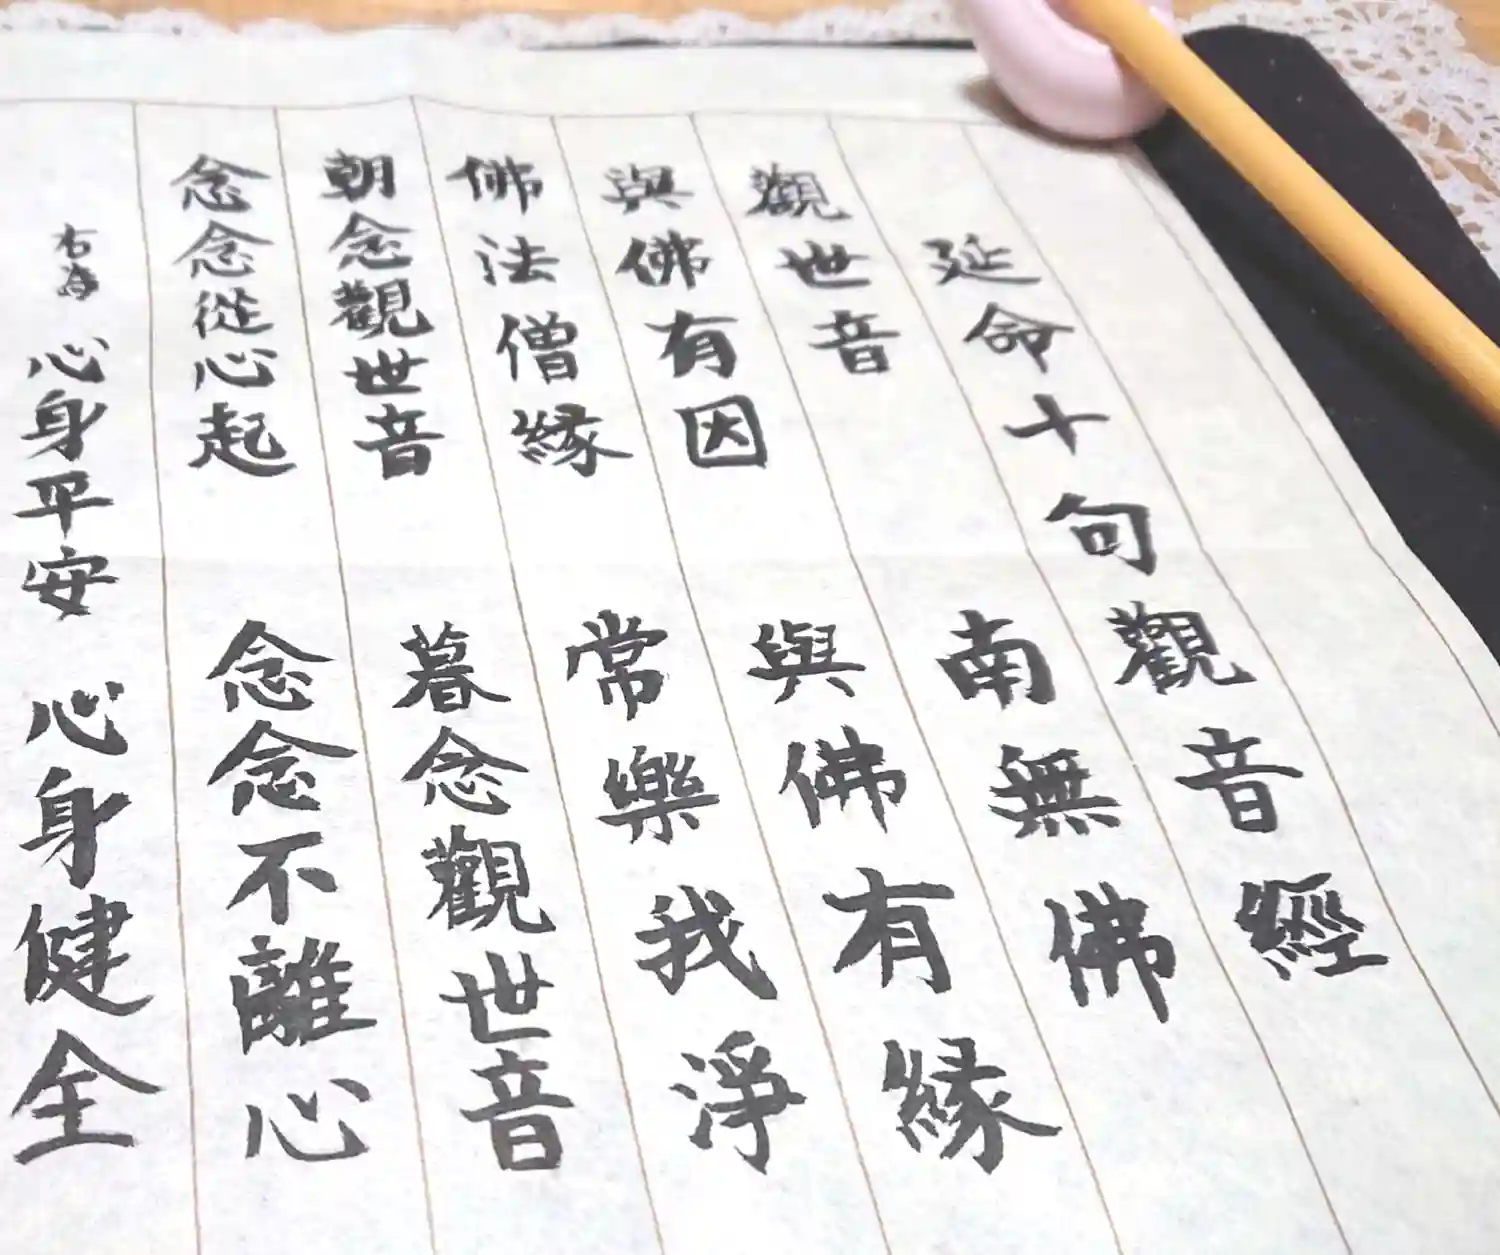 延命十句觀音經
觀世音　南無佛
與佛有因　與佛有縁
佛法僧縁　常樂我淨
朝念觀世音　暮念觀世音
念念從心起　念念不離心
右為　心身平安　心身健全